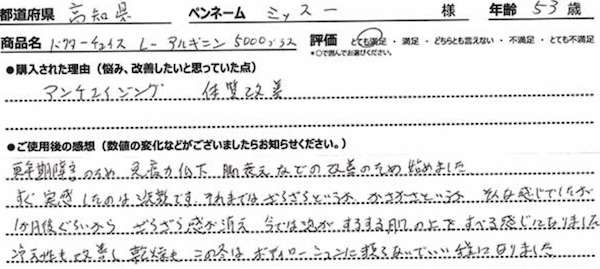 都道府県 高知県 ペンネーム ミッスー 様 年齢 53歳
商品名 ドクターチョイス L-アルギニン5000プラス 評価 とても満足・満足・どちらとも言えない・不満足・とても不満足
*○で囲んでお選びください。
●購入された理由（悩み、改善したいと思っていた点）
アンチエイジング 体質改善
●ご使用後の感想（数値の変化などがございましたらお知らせください。）
更年期障害のため 免疫力低下 腸衰えなどの改善のため始めました
すぐ実感したのは です。それまではざらざらというか かさかさというか そんな感じでしたが
1か月後ぐらいから ざらざら感が消え 今では泡が するする肌の上で すべる感じになりました
冷え性も改善し 乾燥も この冬は ボディローションに頼らないでいい様になりました